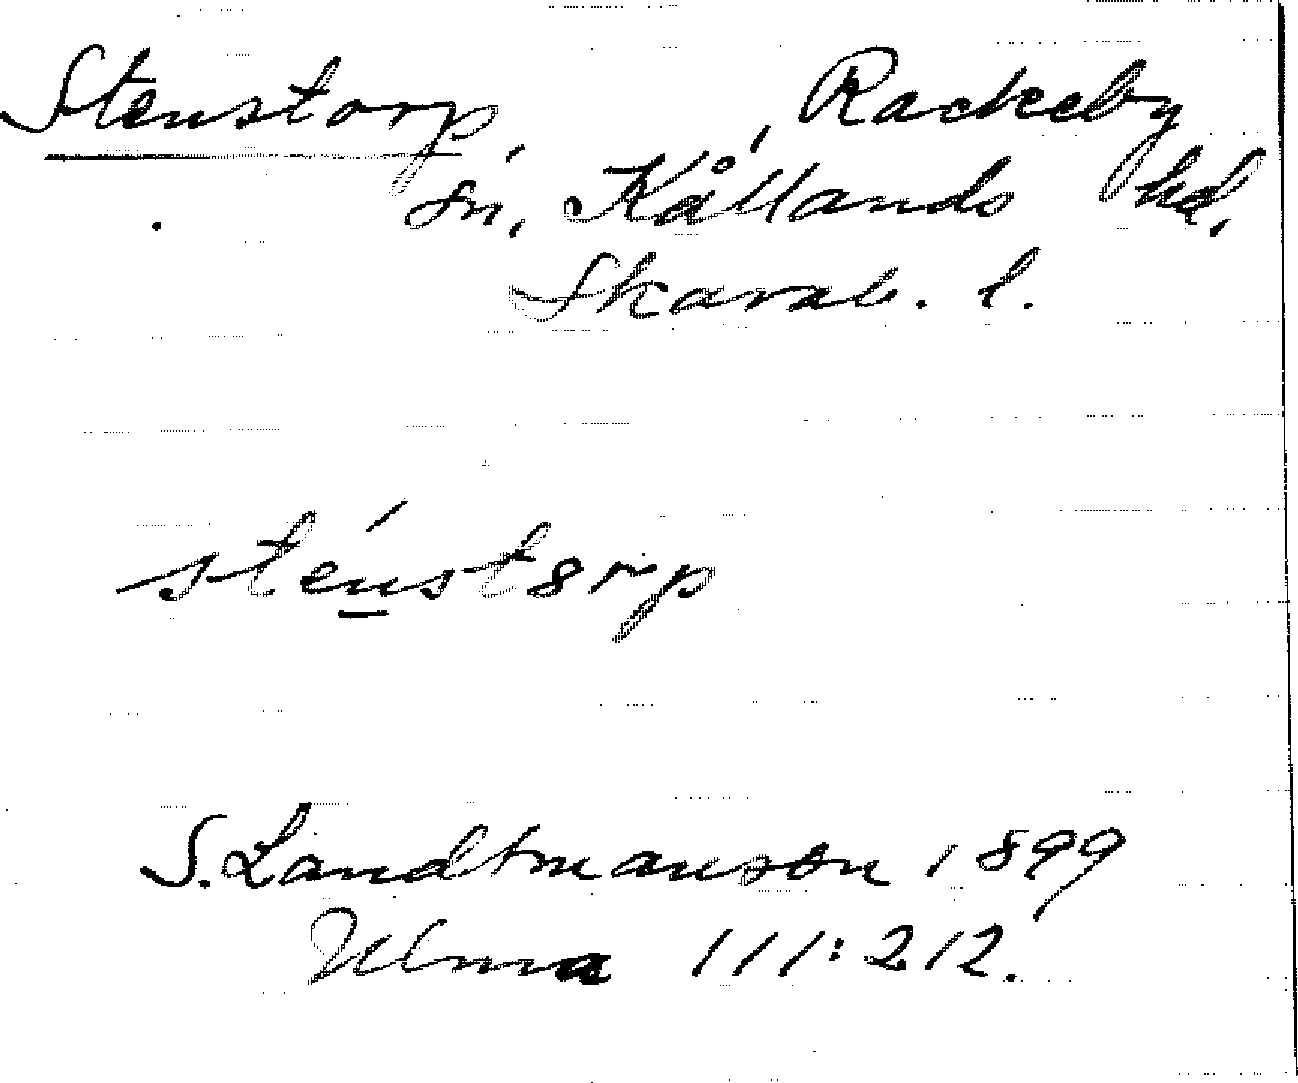 Stenstorp, Rackeby
sn, Kållands hd,
Skarab. l.
sténstorp
S. Landtmanson 1899
Ulma 111:212.